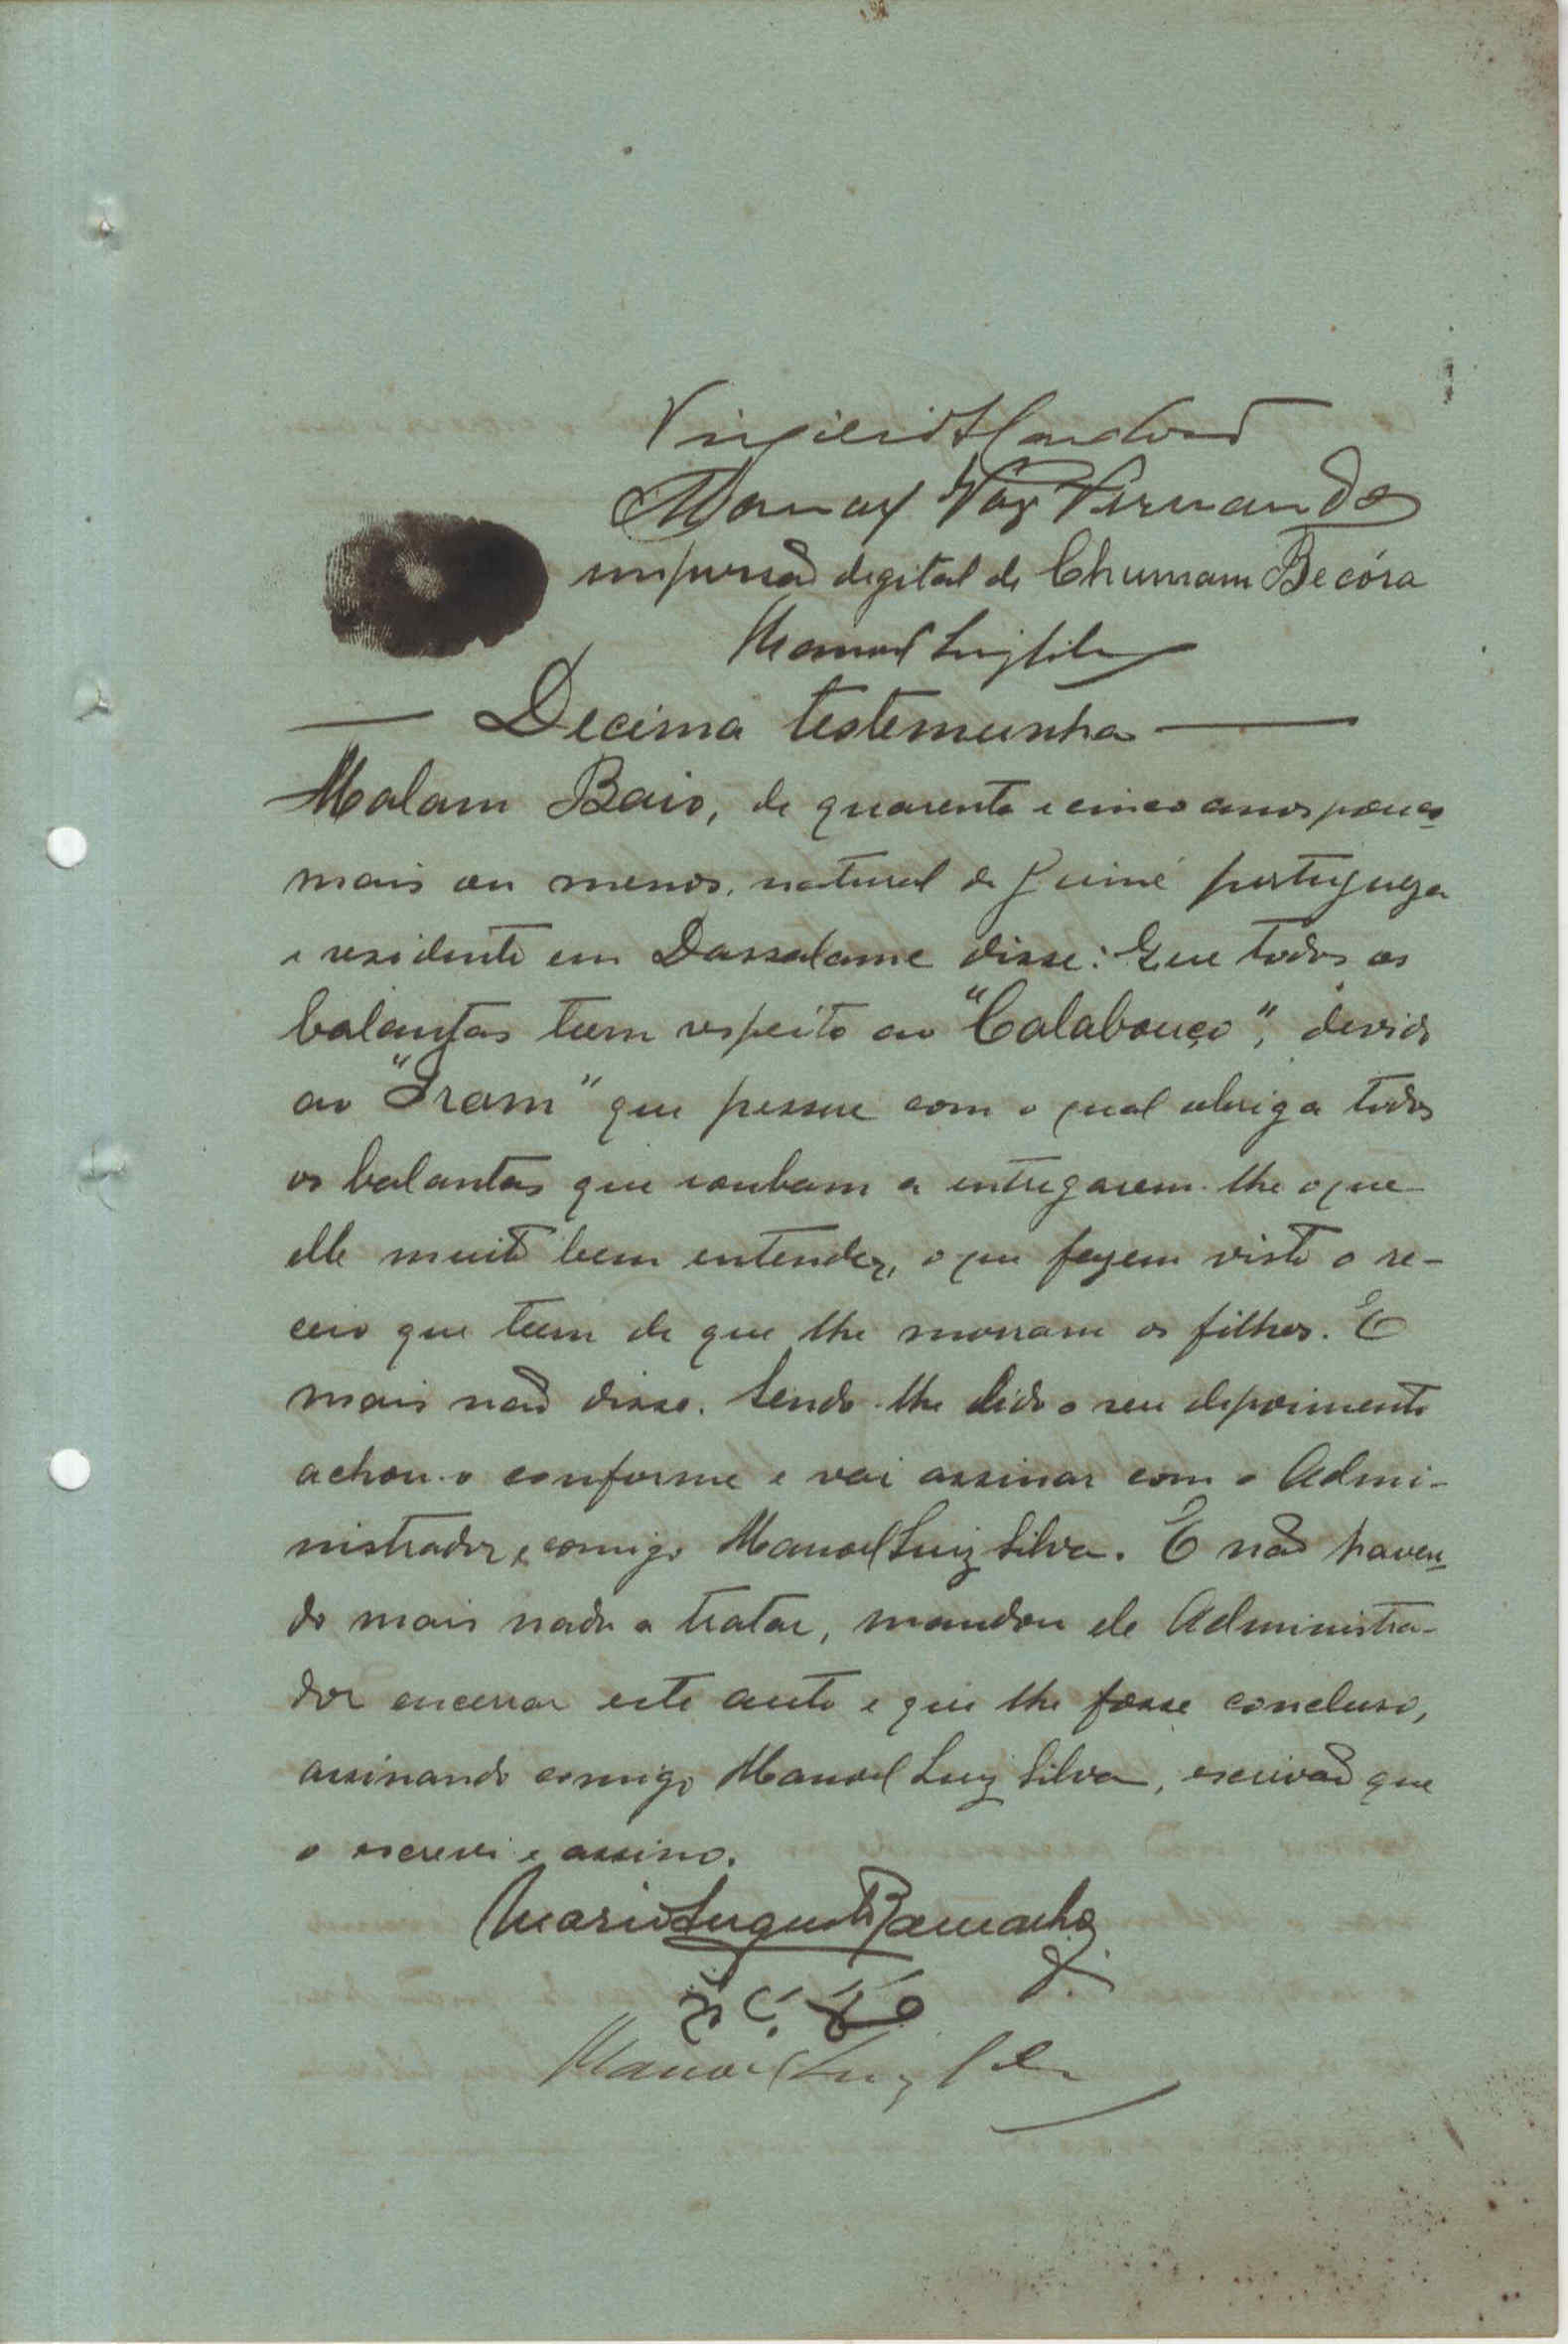 Manoel Vaz Fernandes
impressão degital de Chumam Becóra
Manoel Luiz Silva
Decima testemunha
Malam Baio, de quarenta e cinco anos pouco
mais ou menos, natural da Guiné portugueza
e residente em Dassalame disse: Que todos os
balantas teem respeito ao "Calabouço", devido
ao "Iram" que possue com o qual obriga todos
os balantas que roubam a entregarem-lhe o que
elle muito bem entender, o que fazem visto o re-
ceio que teem de que lhe morram os filhos. E
mais não disse. Sendo-lhe lido o seu depoimento
achou-o conforme e vai assinar com o Admi-
nistrador e comigo Manoel Luiz Silva. E não haven-
do mais nada a tratar, mandou ele Administra-
dor encerrar este auto e que lhe fosse concluso,
assinando comigo Manoel Luiz Silva, escrivão que
o escrevi e assino.
Mario Augusto Ramacho
Manoel Luiz Silva